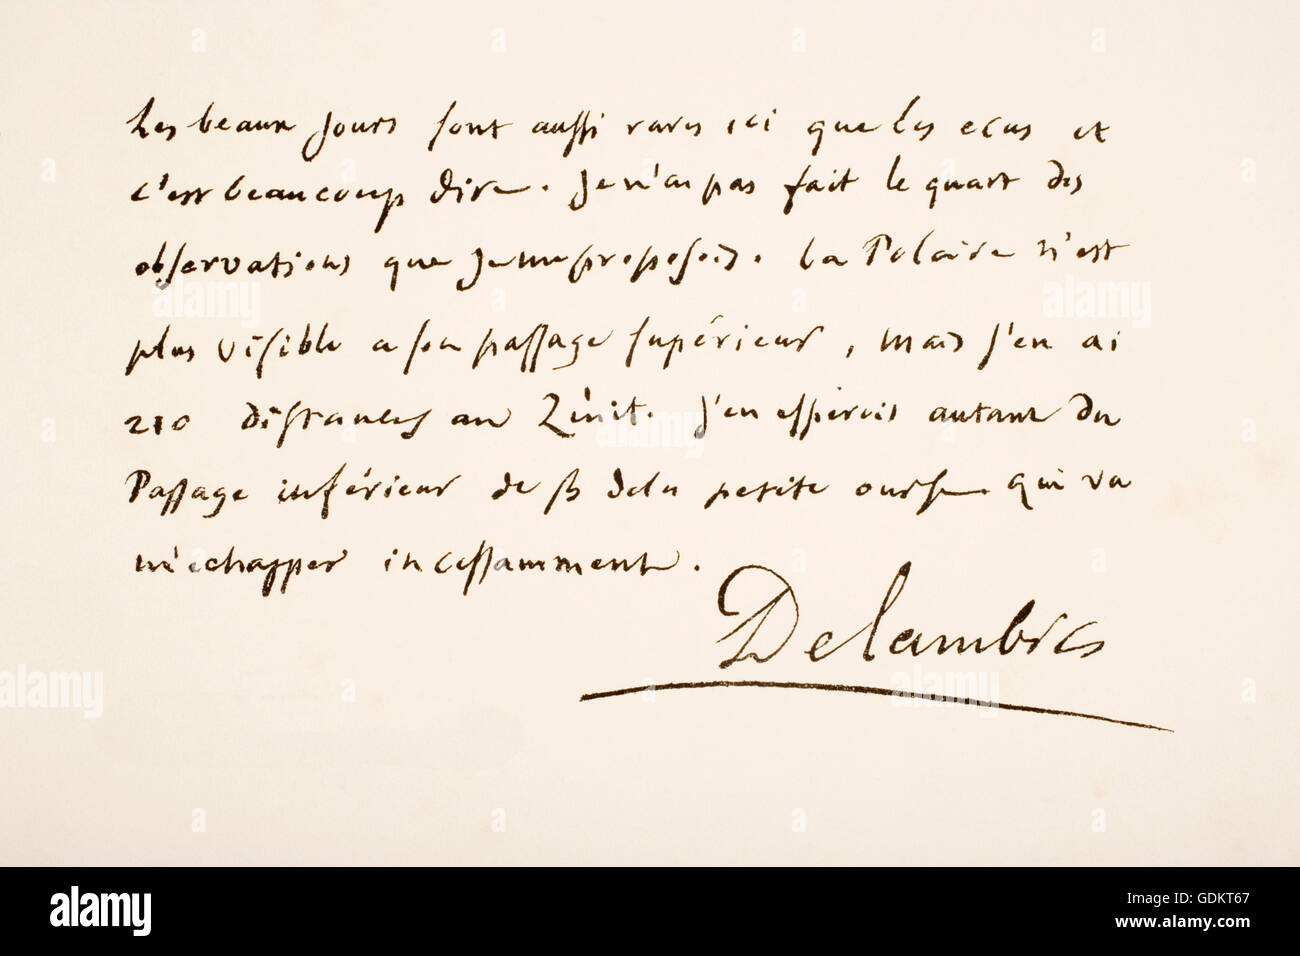 Les beaux jours sont aussi rares ici que les ecus et
c'est beaucoup dire. Je n'ai pas fait le quart des
observations que je me proposois. La Polaire n'est
plus visible a son passage supérieur, mais j'en ai
210 distances au Zénit. J'en esperois autant du
Passage inférieur de β de la petite ourse qui va
m'echapper incessamment.
Delambre
alamy
www.alamy.com - GDKT67